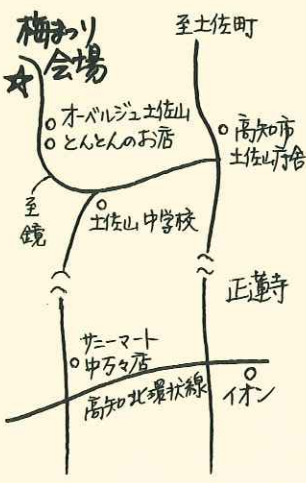 梅まつり
会場
至土佐町
オーベルジュ土佐山
とんとんのお店
高知市
土佐山庁舎
至
鏡
土佐山中学校
正蓮寺
サニーマート
中万々店
高知北環状線
イオン